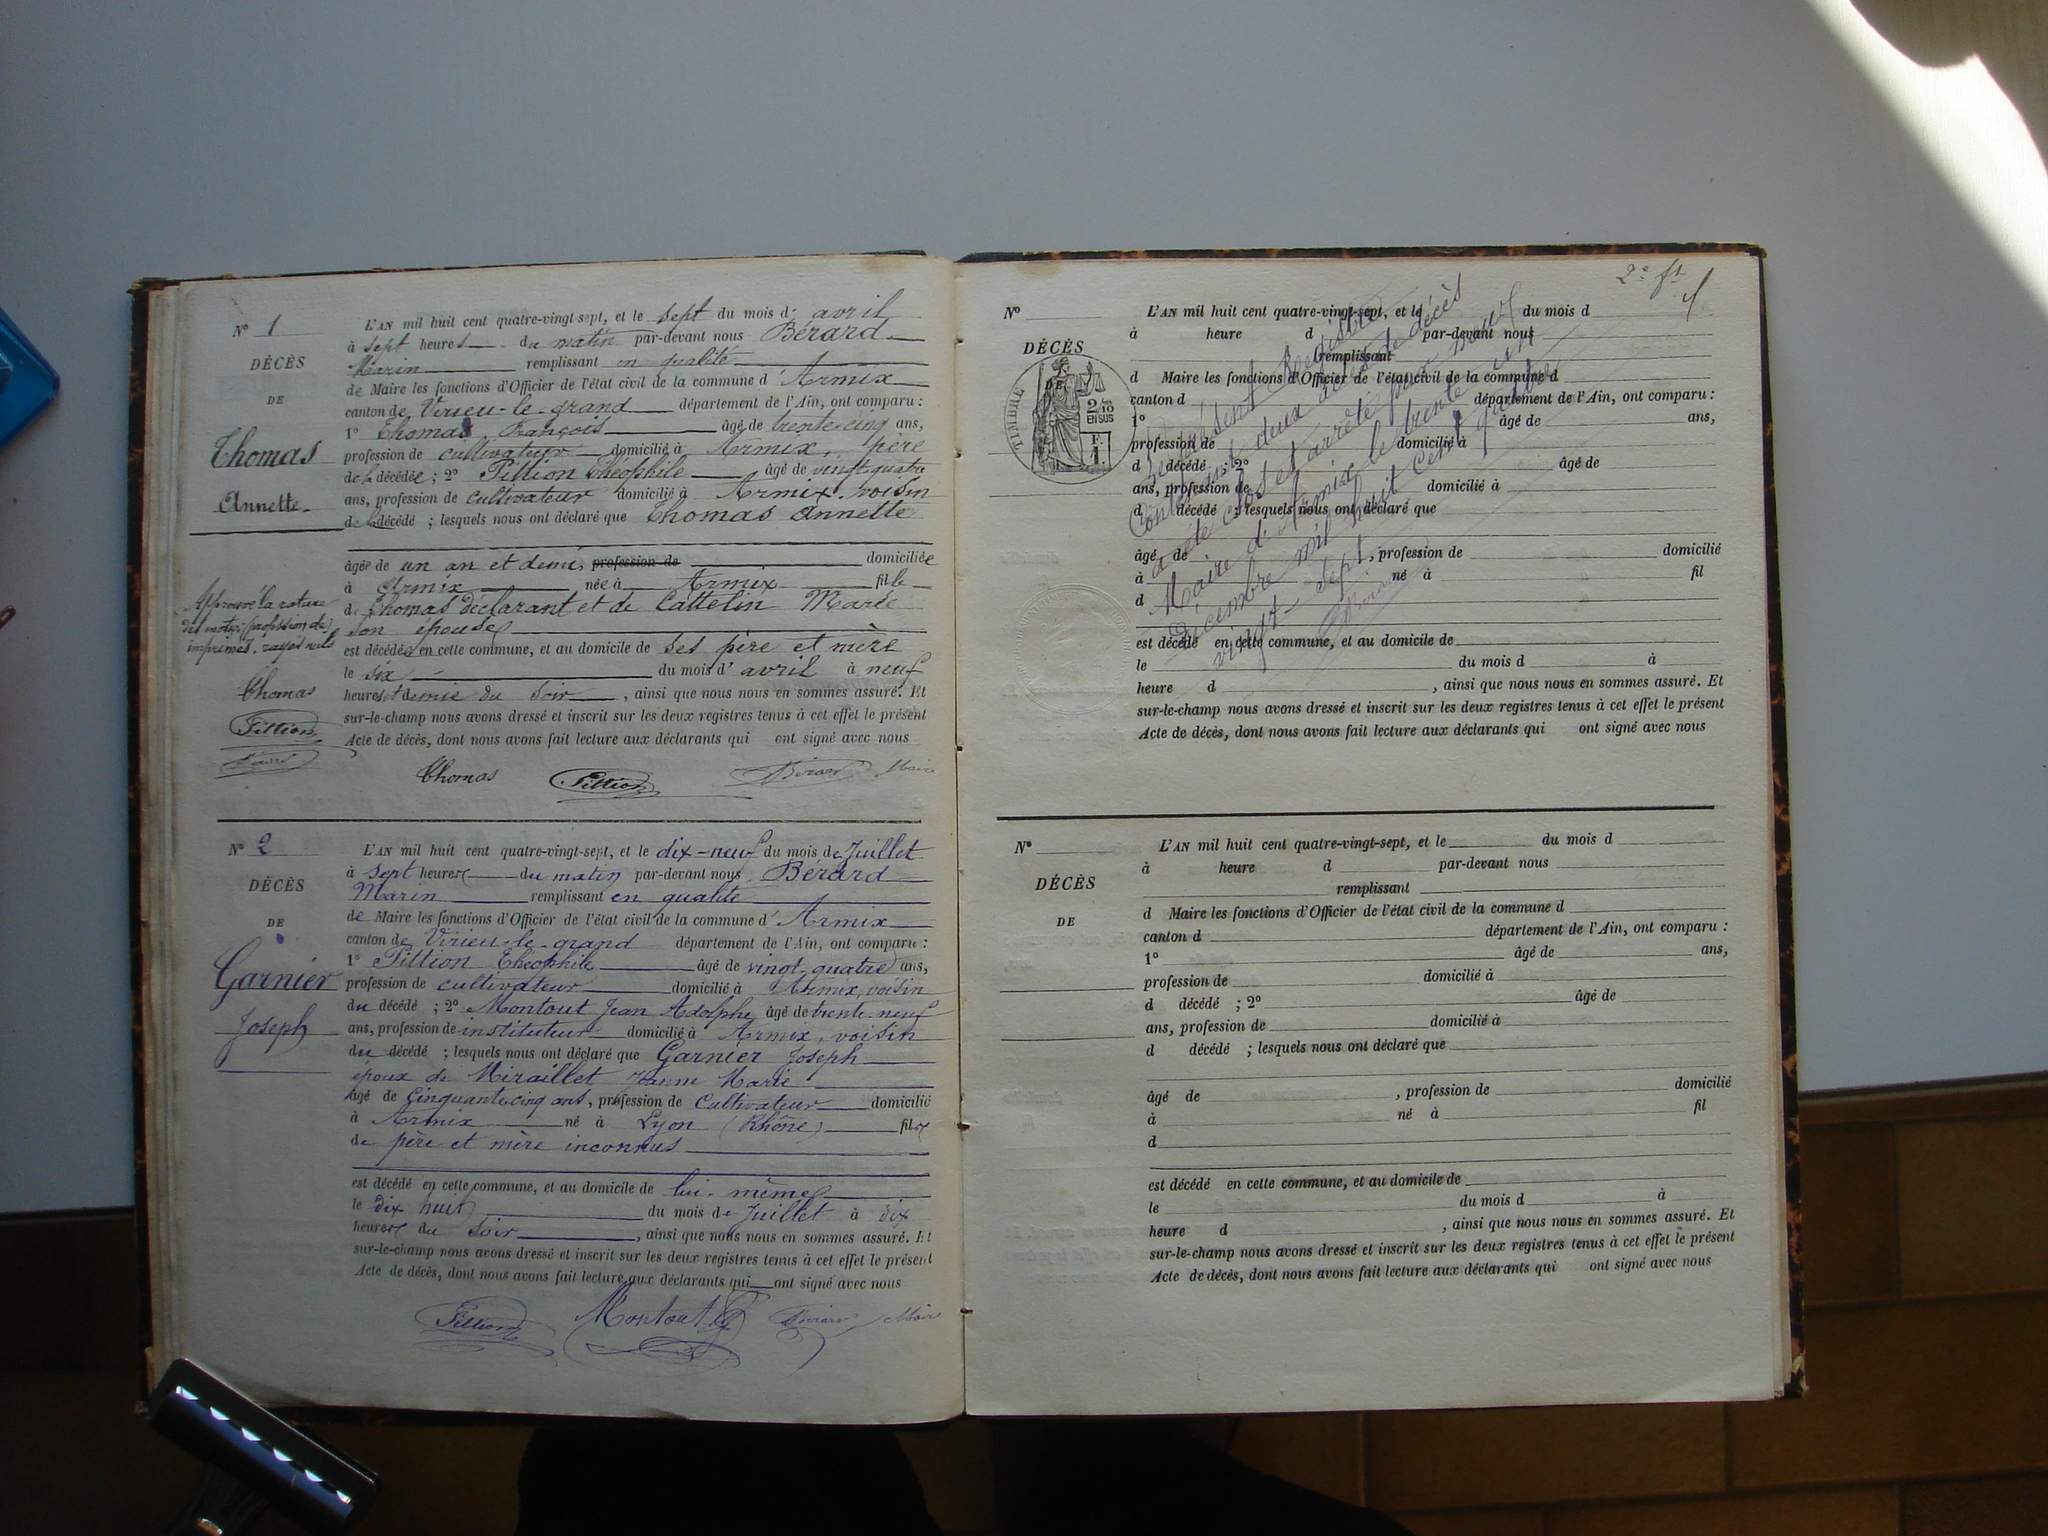 N° 1
DÉCÈS
DE
Thomas
Annette
Approuvé la rature
des mots (profession de)
imprimés, rayés nuls
Thomas
Pittion
L'AN mil huit cent quatre-vingt-sept, et le sept du mois d' avril
à sept heures du matin par-devant nous Bérard
Marin remplissant en qualité
de Maire les fonctions d'Officier de l'état civil de la commune d' Armix
canton de Virieu-le-grand département de l'Ain, ont comparu :
1° Thomas François âgé de trente-cinq ans,
profession de cultivateur domicilié à Armix, père
de la décédée ; 2° Pittion Théophile âgé de vingt-quatre
ans, profession de cultivateur domicilié à Armix, voisin
de la décédé ; lesquels nous ont déclaré que Thomas Annette
âgée de un an et demi, profession de domiciliée
à Armix née à Armix fille
de Thomas déclarant et de Cattelin Marie
son épouse
est décédée en cette commune, et au domicile de ses père et mère
le six du mois d' avril à neuf
heures et demie du soir, ainsi que nous nous en sommes assuré. Et
sur-le-champ nous avons dressé et inscrit sur les deux registres tenus à cet effet le présent
Acte de décès, dont nous avons fait lecture aux déclarants qui ont signé avec nous
Thomas Pittion Bérard Maire
N° 2
DÉCÈS
DE
Garnier
Joseph
L'AN mil huit cent quatre-vingt-sept, et le dix-neuf du mois de Juillet
à sept heures du matin par-devant nous Bérard
Marin remplissant en qualité
de Maire les fonctions d'Officier de l'état civil de la commune d' Armix
canton de Virieu-le-grand département de l'Ain, ont comparu :
1° Pittion Théophile âgé de vingt-quatre ans,
profession de cultivateur domicilié à Armix, voisin
du décédé ; 2° Montout Jean Adolphe âgé de trente-neuf
ans, profession de instituteur domicilié à Armix, voisin
du décédé ; lesquels nous ont déclaré que Garnier Joseph
époux de Miraillet Jeanne Marie
âgé de cinquante-cinq ans, profession de cultivateur domicilié
à Armix né à Lyon (Rhône) fils
de père et mère inconnus
est décédé en cette commune, et au domicile de lui-même
le dix huit du mois de Juillet à dix
heures du soir, ainsi que nous nous en sommes assuré. Et
sur-le-champ nous avons dressé et inscrit sur les deux registres tenus à cet effet le présent
Acte de décès, dont nous avons fait lecture aux déclarants qui ont signé avec nous
Pittion Montout Bérard Maire
2e ft
N°
DÉCÈS
DE
TIMBRE
2/10
EN SUS
F.
1.
L'AN mil huit cent quatre-vingt-sept, et le du mois d
à heure d par-devant nous
remplissant
d Maire les fonctions d'Officier de l'état civil de la commune d
canton d département de l'Ain, ont comparu :
1° âgé de ans,
profession de domicilié à
d décédé ; 2° âgé de
ans, profession de domicilié à
d décédé ; lesquels nous ont déclaré que
âgé de , profession de domicilié
à né à fil
d
est décédé en cette commune, et au domicile de
le du mois d à
heure d , ainsi que nous nous en sommes assuré. Et
sur-le-champ nous avons dressé et inscrit sur les deux registres tenus à cet effet le présent
Acte de décès, dont nous avons fait lecture aux déclarants qui ont signé avec nous
Le présent Registre
contenant deux actes de décès
a été clos et arrêté par nous
Maire d'Armix le trente-un
décembre mil huit cent quatre
vingt-sept
N°
DÉCÈS
DE
L'AN mil huit cent quatre-vingt-sept, et le du mois d
à heure d par-devant nous
remplissant
d Maire les fonctions d'Officier de l'état civil de la commune d
canton d département de l'Ain, ont comparu :
1° âgé de ans,
profession de domicilié à
d décédé ; 2° âgé de
ans, profession de domicilié à
d décédé ; lesquels nous ont déclaré que
âgé de , profession de domicilié
à né à fil
d
est décédé en cette commune, et au domicile de
le du mois d à
heure d , ainsi que nous nous en sommes assuré. Et
sur-le-champ nous avons dressé et inscrit sur les deux registres tenus à cet effet le présent
Acte de décès, dont nous avons fait lecture aux déclarants qui ont signé avec nous